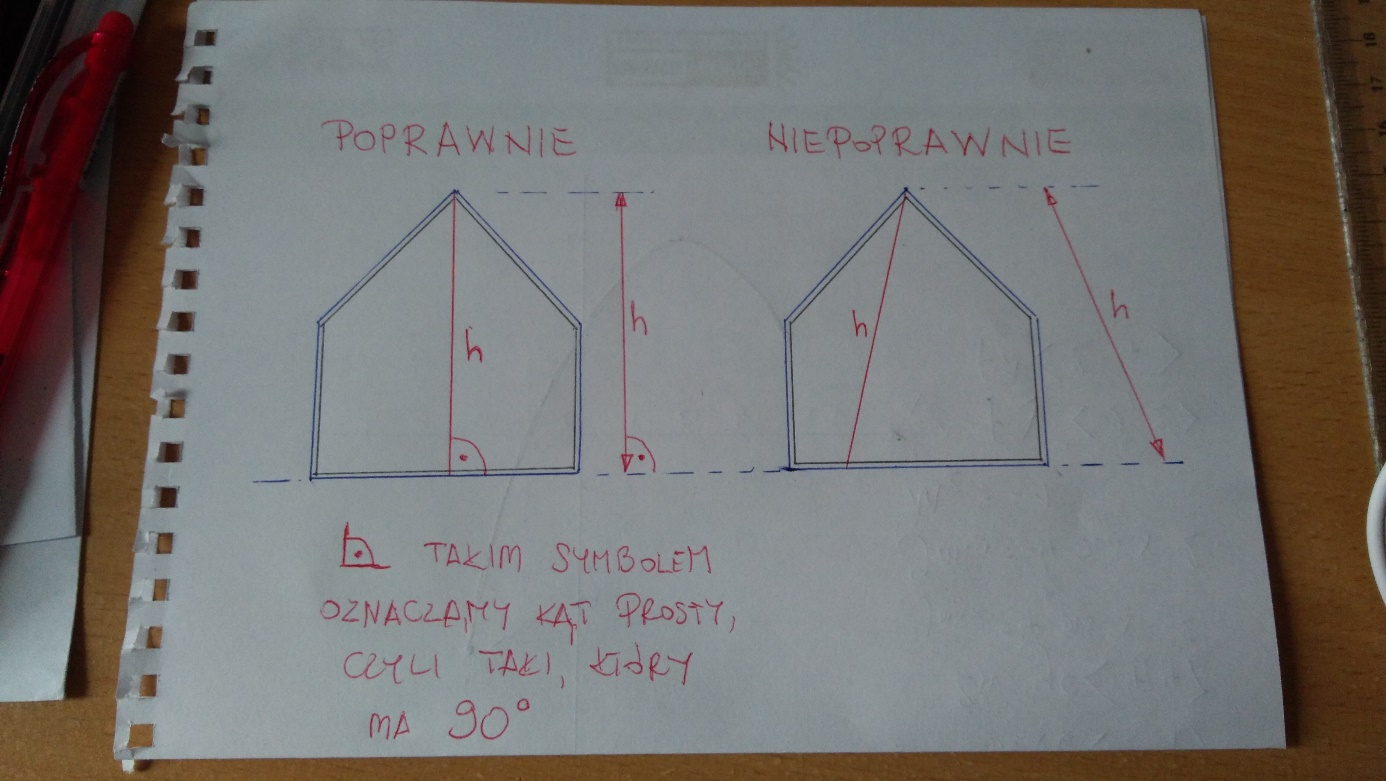 POPRAWNIE
NIEPOPRAWNIE
h
h
h
h
TAKIM SYMBOLEM
OZNACZAMY KĄT PROSTY,
CZYLI TAKI, KTÓRY
MA 90°
18
17
16